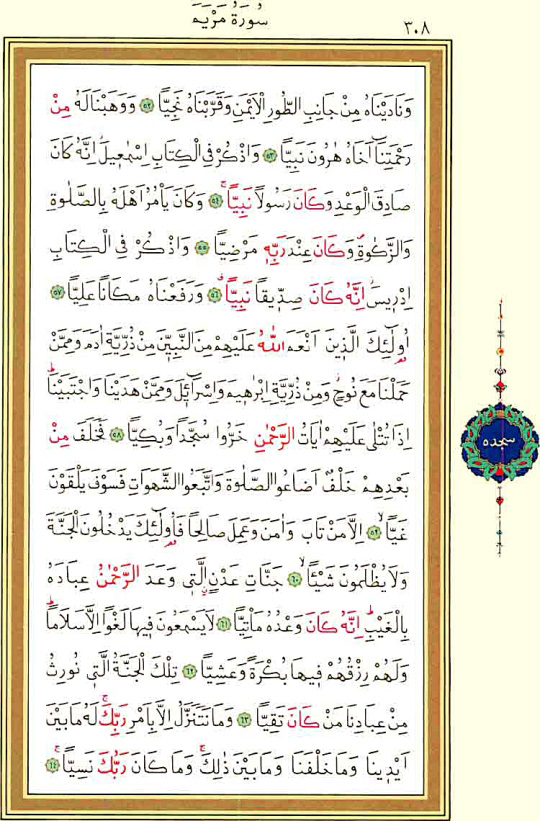 سُورَةُ مَرْيَمَ
٣٠٨
وَنَادَيْنَاهُ مِنْ جَانِبِ الطُّورِ الْاَيْمَنِ وَقَرَّبْنَاهُ نَجِيًّا ﴿٥٢﴾ وَوَهَبْنَا لَهُ مِنْ
رَحْمَتِنَٓا اَخَاهُ هٰرُونَ نَبِيًّا ﴿٥٣﴾ وَاذْكُرْ فِي الْكِتَابِ اِسْمٰعٖيلَۘ اِنَّهُ كَانَ
صَادِقَ الْوَعْدِ وَكَانَ رَسُولًا نَبِيًّاۚ ﴿٥٤﴾ وَكَانَ يَأْمُرُ اَهْلَهُ بِالصَّلٰوةِ
وَالزَّكٰوةِۖ وَكَانَ عِنْدَ رَبِّهٖ مَرْضِيًّا ﴿٥٥﴾ وَاذْكُرْ فِي الْكِتَابِ
اِدْرٖيسَۘ اِنَّهُ كَانَ صِدّٖيقًا نَبِيًّاۗ ﴿٥٦﴾ وَرَفَعْنَاهُ مَكَانًا عَلِيًّا ﴿٥٧﴾
اُو۬لٰٓئِكَ الَّذٖينَ اَنْعَمَ اللّٰهُ عَلَيْهِمْ مِنَ النَّبِيّٖنَ مِنْ ذُرِّيَّةِ اٰدَمَ وَمِمَّنْ
حَمَلْنَا مَعَ نُوحٍۘ وَمِنْ ذُرِّيَّةِ اِبْرٰهٖيمَ وَاِسْرَٓائٖلَ وَمِمَّنْ هَدَيْنَا وَاجْتَبَيْنَاۜ
اِذَا تُتْلٰى عَلَيْهِمْ اٰيَاتُ الرَّحْمٰنِ خَرُّوا سُجَّدًا وَبُكِيًّا ﴿٥٨﴾ فَخَلَفَ مِنْ
بَعْدِهِمْ خَلْفٌ اَضَاعُوا الصَّلٰوةَ وَاتَّبَعُوا الشَّهَوَاتِ فَسَوْفَ يَلْقَوْنَ
غَيًّاۙ ﴿٥٩﴾ اِلَّا مَنْ تَابَ وَاٰمَنَ وَعَمِلَ صَالِحًا فَاُو۬لٰٓئِكَ يَدْخُلُونَ الْجَنَّةَ
وَلَا يُظْلَمُونَ شَيْـًٔاۙ ﴿٦٠﴾ جَنَّاتِ عَدْنٍ الَّتٖي وَعَدَ الرَّحْمٰنُ عِبَادَهُ
بِالْغَيْبِۜ اِنَّهُ كَانَ وَعْدُهُ مَأْتِيًّا ﴿٦١﴾ لَا يَسْمَعُونَ فٖيهَا لَغْوًا اِلَّا سَلَامًاۜ
وَلَهُمْ رِزْقُهُمْ فٖيهَا بُكْرَةً وَعَشِيًّا ﴿٦٢﴾ تِلْكَ الْجَنَّةُ الَّتٖي نُورِثُ
مِنْ عِبَادِنَا مَنْ كَانَ تَقِيًّا ﴿٦٣﴾ وَمَا نَتَنَزَّلُ اِلَّا بِاَمْرِ رَبِّكَۚ لَهُ مَا بَيْنَ
اَيْدٖينَا وَمَا خَلْفَنَا وَمَا بَيْنَ ذٰلِكَۚ وَمَا كَانَ رَبُّكَ نَسِيًّاۚ ﴿٦٤﴾
سجده